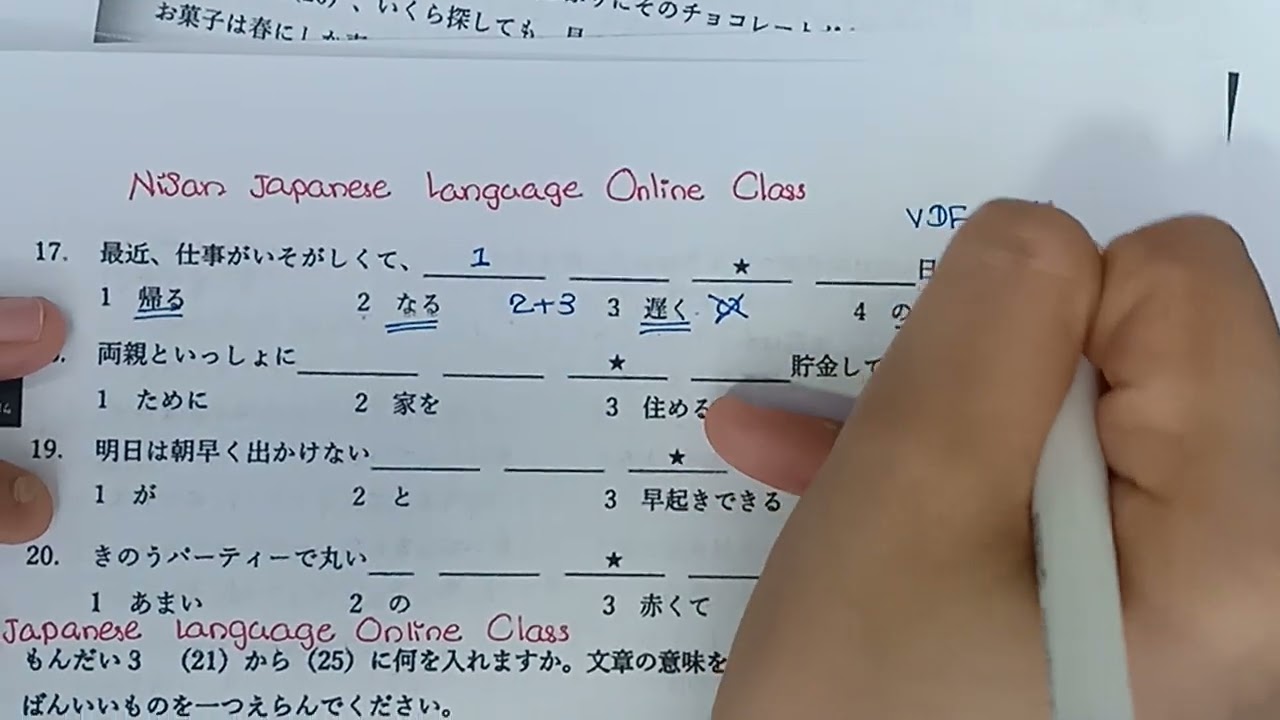 、いくら探しても
にそのチョコレート
お菓子は春に
Nisan Japanese Language Online Class
VDF
17. 最近、仕事がいそがしくて、 1 ★ 日
1 帰る 2 なる 2+3 3 遅く 4 の
両親といっしょに ★ 貯金して
1 ために 2 家を 3 住める
19. 明日は朝早く出かけない ★
1 が 2 と 3 早起きできる
20. きのうパーティーで丸い ★
1 あまい 2 の 3 赤くて
Japanese Language Online Class
もんだい3 (21) から (25) に何を入れますか。文章の意味を
ばんいいものを一つえらんでください。